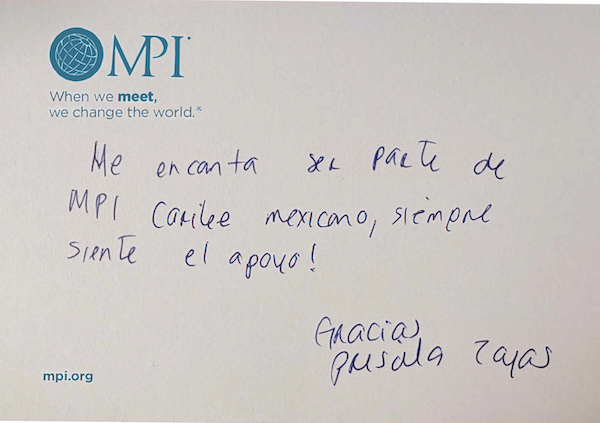 MPI
When we meet,
we change the world.®
Me encanta ser parte de
MPI Caribe mexicano, siempre
siente el apoyo!
Gracias
mpi.org